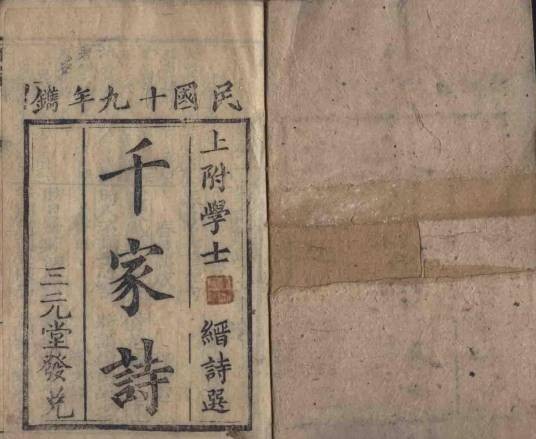 民國十九年鐫
上附學士 縉詩選
千家詩
三元堂發兌